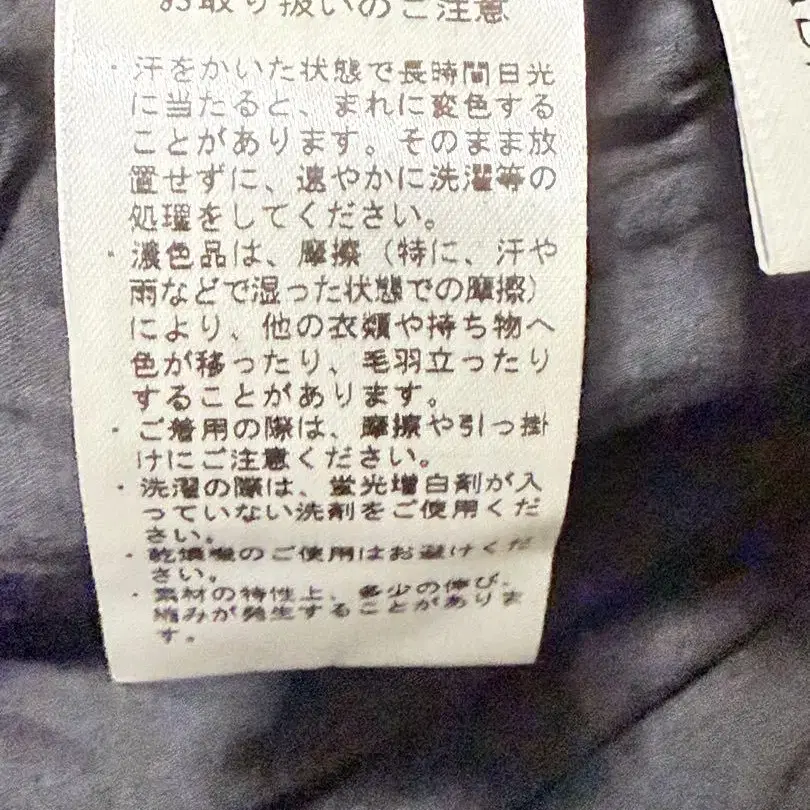 お取り扱いのご注意
・汗をかいた状態で長時間日光
に当たると、まれに変色する
ことがあります。そのまま放
置せずに、速やかに洗濯等の
処理をしてください。
・濃色品は、摩擦（特に、汗や
雨などで湿った状態での摩擦）
により、他の衣類や持ち物へ
色が移ったり、毛羽立ったり
することがあります。
・ご着用の際は、摩擦や引っ掛
けにご注意ください。
・洗濯の際は、蛍光増白剤が入
っていない洗剤をご使用くだ
さい。
・乾燥機のご使用はお避けくだ
さい。
・素材の特性上、多少の伸び、
縮みが発生することがありま
す。